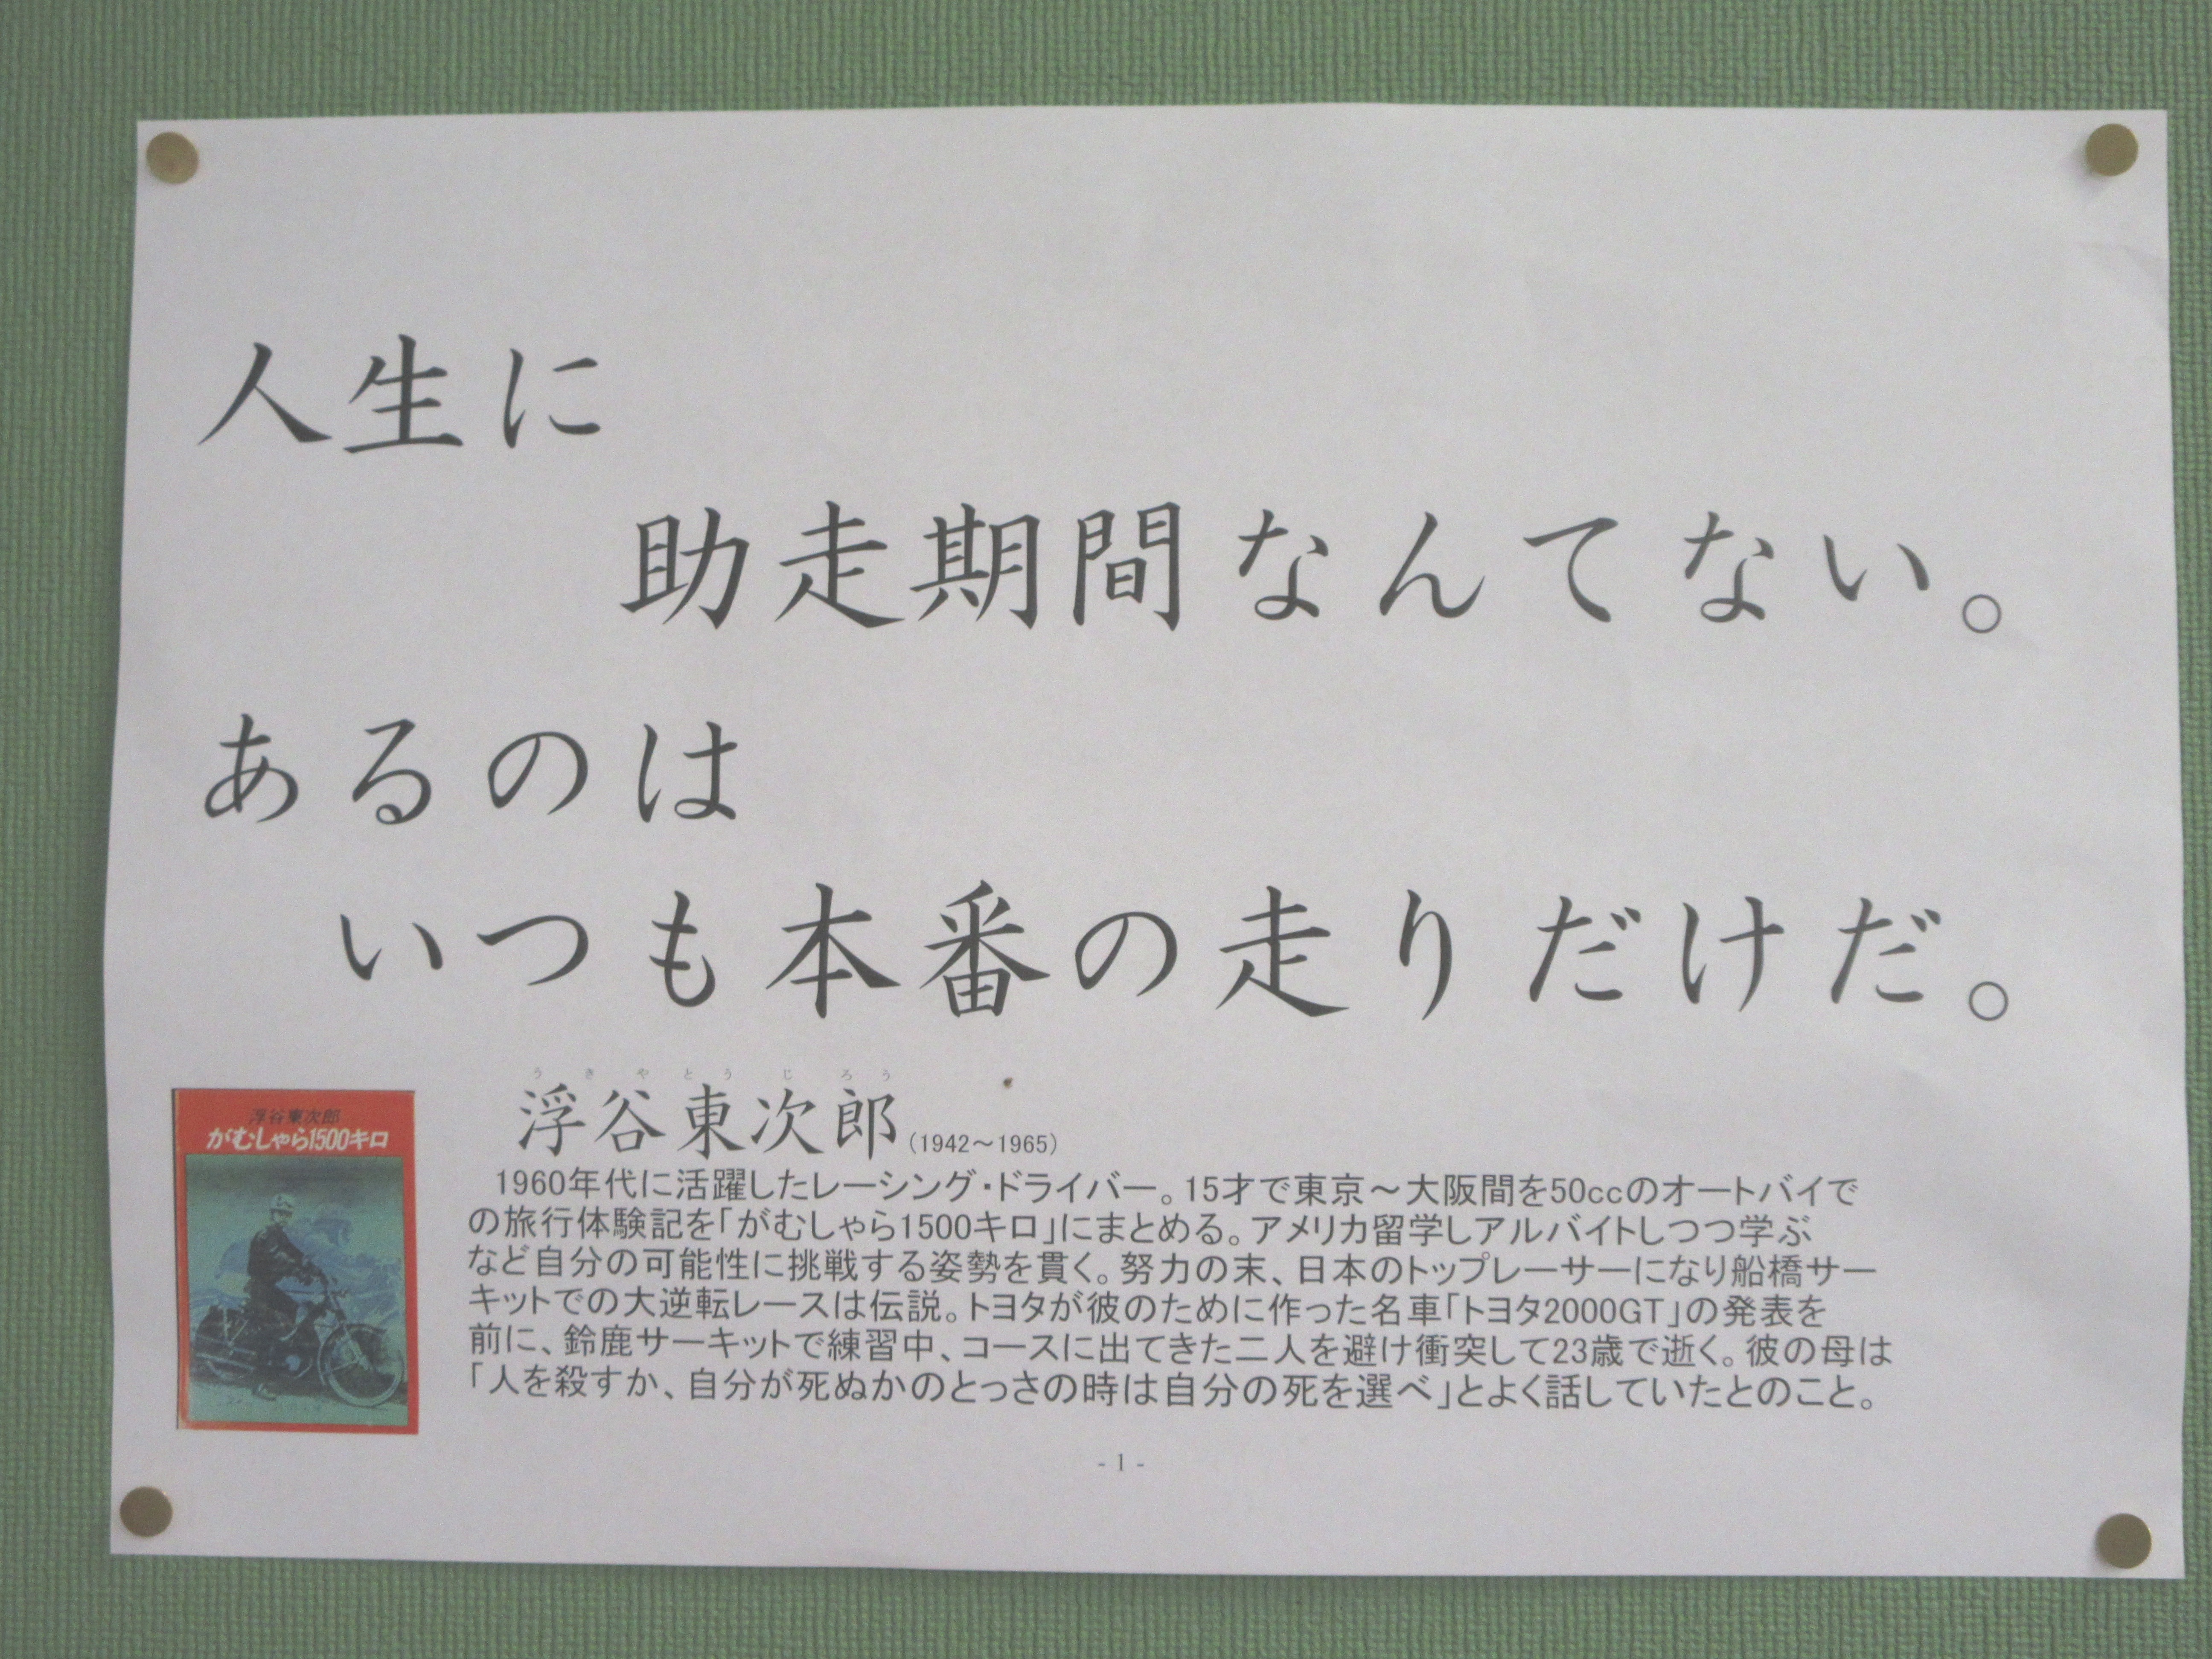 人生に
助走期間なんてない。
あるのは
いつも本番の走りだけだ。
うきやとうじろう
浮谷東次郎(1942～1965)
浮谷東次郎
がむしゃら1500キロ
1960年代に活躍したレーシング・ドライバー。15才で東京～大阪間を50ccのオートバイで
の旅行体験記を「がむしゃら1500キロ」にまとめる。アメリカ留学しアルバイトしつつ学ぶ
など自分の可能性に挑戦する姿勢を貫く。努力の末、日本のトップレーサーになり船橋サー
キットでの大逆転レースは伝説。トヨタが彼のために作った名車「トヨタ2000GT」の発表を
前に、鈴鹿サーキットで練習中、コースに出てきた二人を避け衝突して23歳で逝く。彼の母は
「人を殺すか、自分が死ぬかのとっさの時は自分の死を選べ」とよく話していたとのこと。
- 1 -